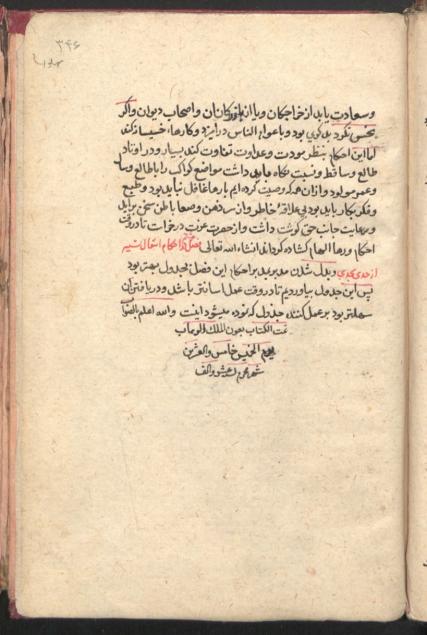 ۳۴۶
و سعادت یابد از خواجکان و یا از بازرکانان و اصحاب دیوان و اکر
نحس نکرد بدکوی بود و با عوام الناس در امیزد و کارهاء خسیسانه کند
اما این احکام بنظر مودت و عداوت تفاوت کند بسیار و در اوتاد
طالع و ساقط و نسبت نکاه باید داشت مواضع کواکب را با طالع و سال
و عمر مولود و از ان همه که وصیت کرده ایم بارها غافل نباید بود و طبع
و فکر بکار باید بود بی علاقهٔ خاطر و از سر ذهن و صفاء باطن سخن براند
و رعایت جانب حق کوشت داشت و از حضرت عزت درخواست تا در وقت
احکام درهاء الهام کشاده کرداند انشاء الله تعالی فصل در احکام انتقال
از حدی بحدی و بدل شدن مدبر بدبر احکام این فصل بجدول مهتر بود
پس این جدول بیاوردیم تا در وقت عمل اسانتر باشد و دریافتن ان
سهلتر بود بر عمل کننده جدول که نوده میشود اینست والله اعلم بالصواب
تمت الکتاب بعون الملک الوهاب
یوم الخمیس خامس والعشرین
شهر محرم